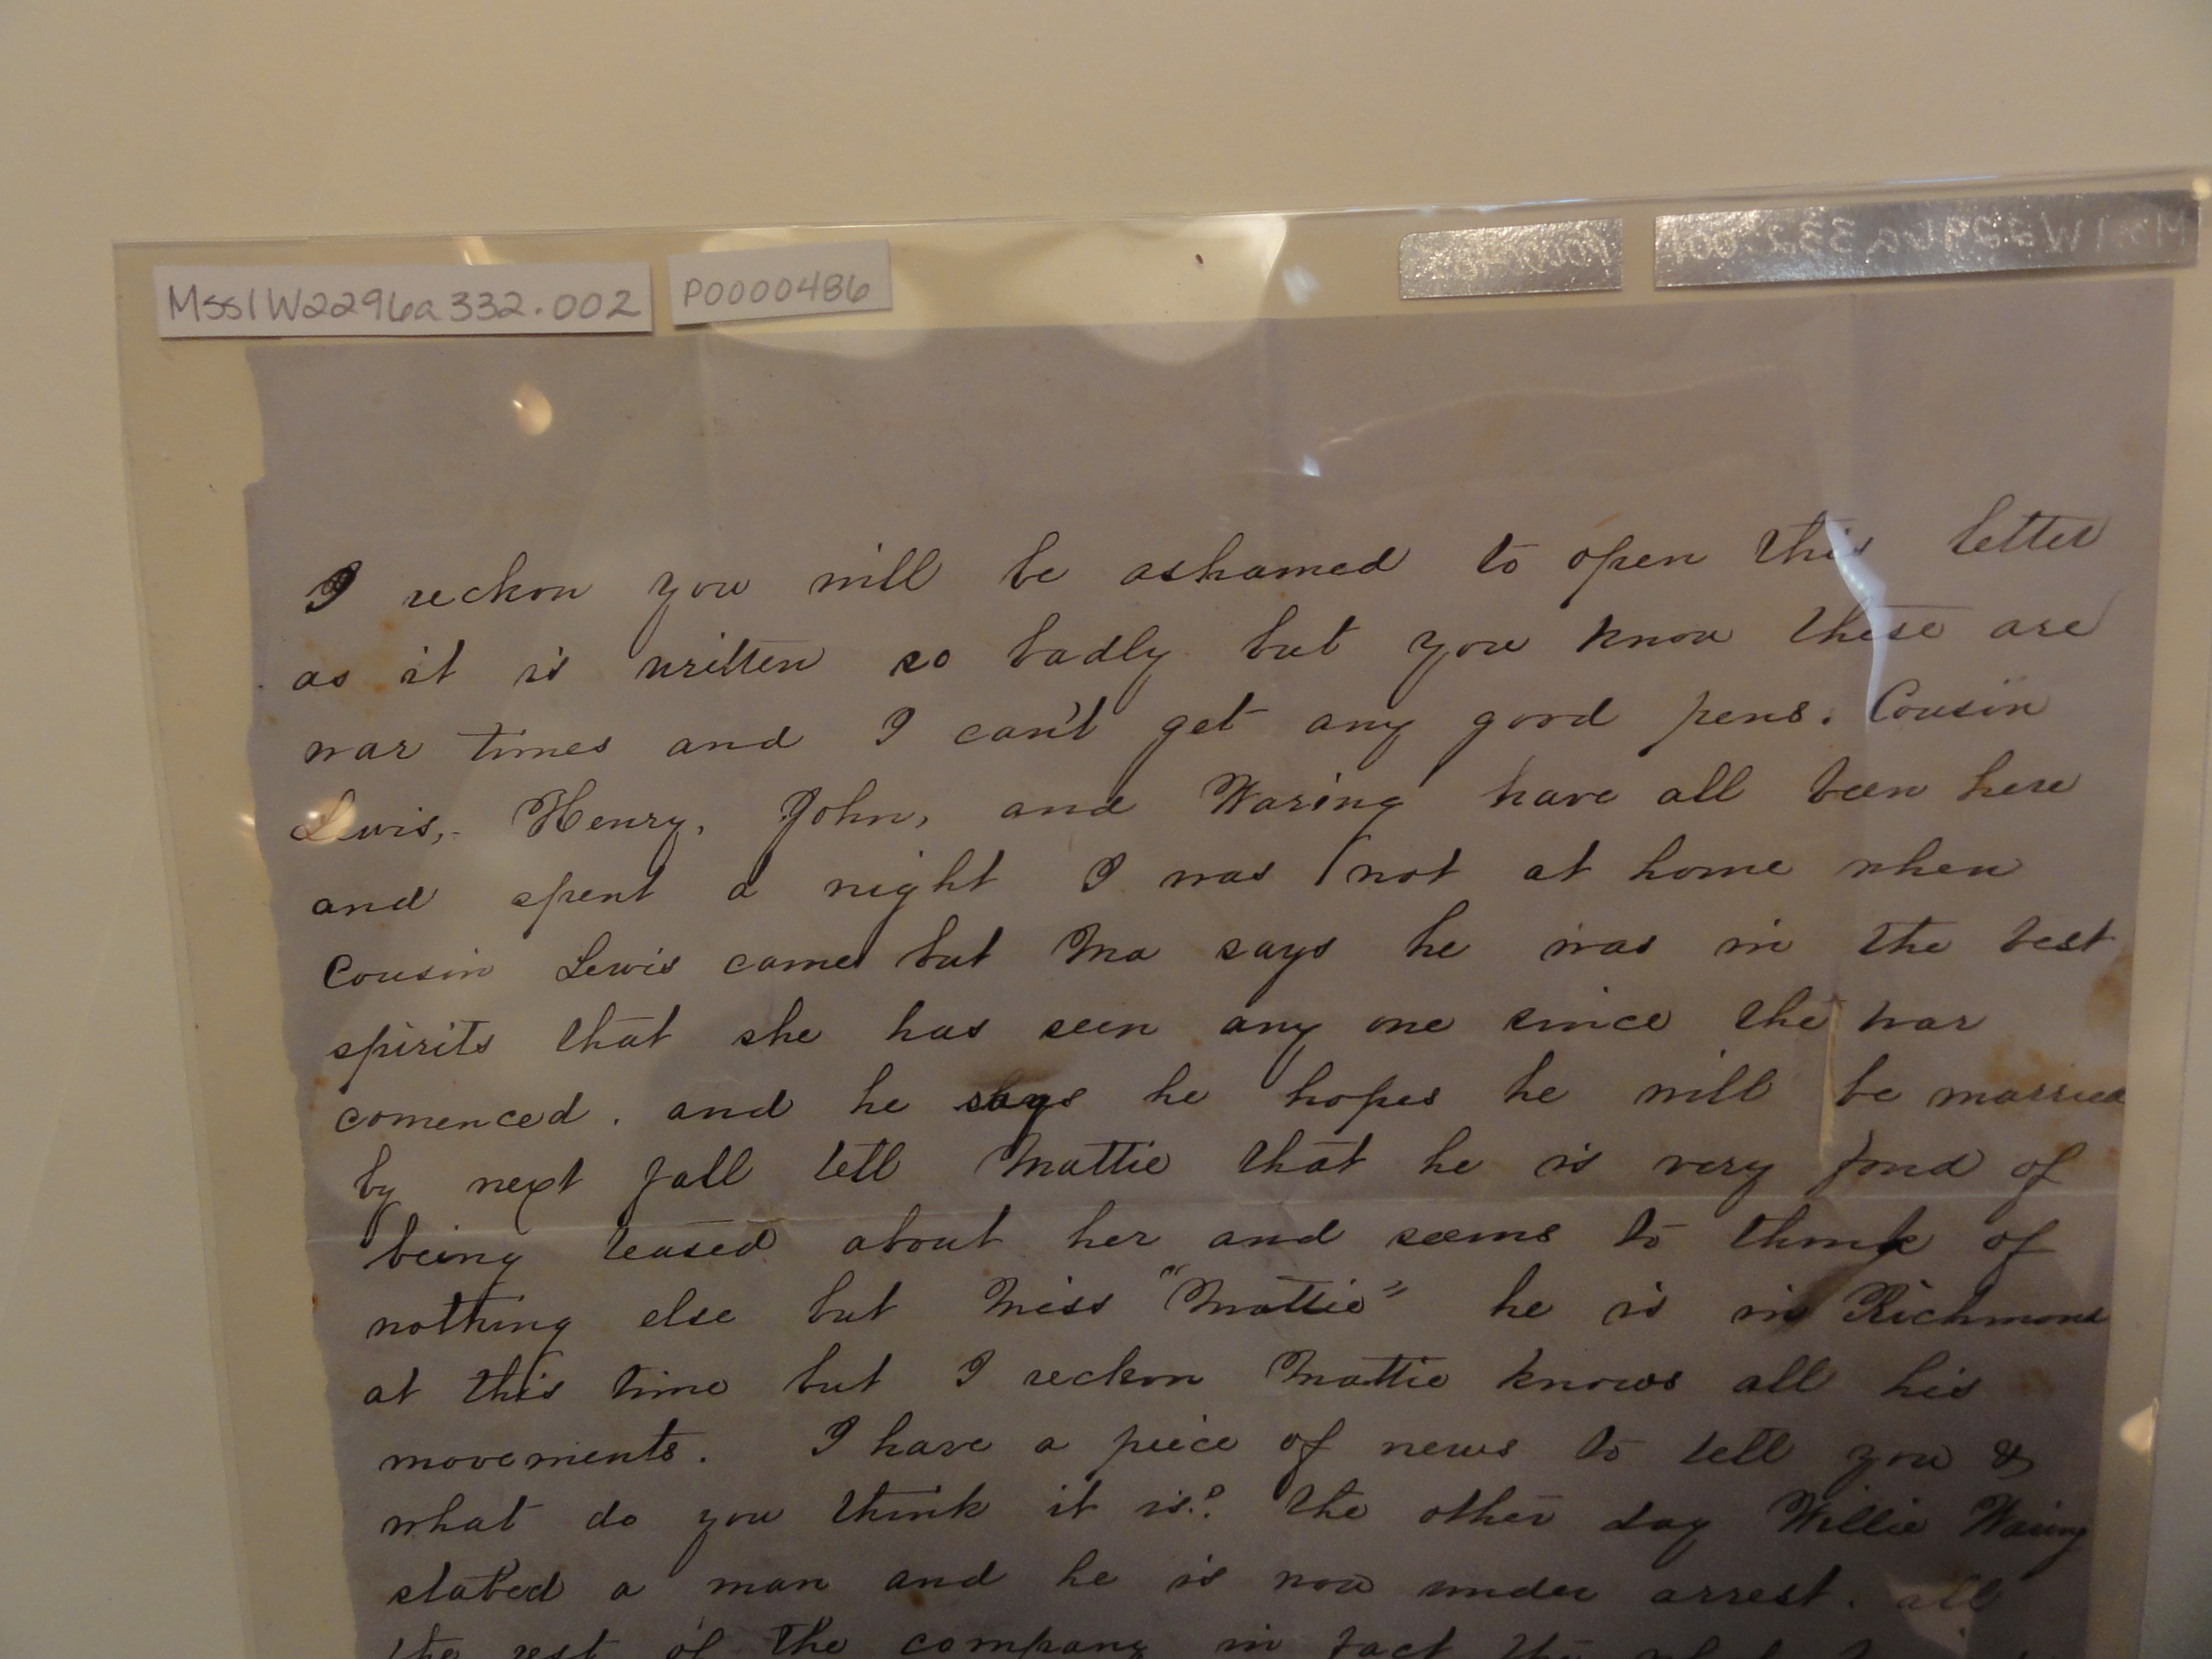 Mss1W2296a332.002 P0000486
I reckon you will be ashamed to open this letter
as it is written so badly but you know these are
war times and I can't get any good pens. Cousin
Lewis, Henry, John, and Waring have all been here
and spent a night I was not at home when
Cousin Lewis came but Ma says he was in the best
spirits that she has seen any one since the war
comenced. and he says he hopes he will be married
by next fall tell Mattie that he is very fond of
being teased about her and seems to think of
nothing else but Miss "Mattie" he is in Richmond
at this time but I reckon Mattie knows all his
movements. I have a piece of news to tell you &
what do you think it is? The other day Willie Waring
stabed a man and he is now under arrest. all
the rest of the company in fact the